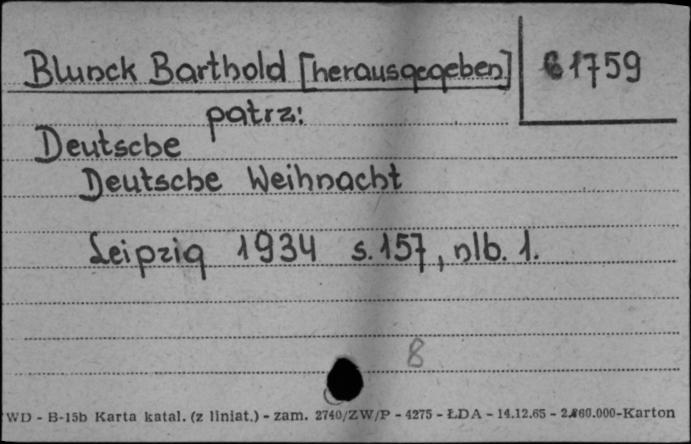 Blunck Barthold [herausgegeben] 61759
patrz:
Deutsche
Deutsche Weihnacht
Leipzig 1934 s. 157, nlb. 1.
8
WD - B-15b Karta katal. (z liniat.) - zam. 2740/ZW/P - 4275 - ŁDA - 14.12.65 - 2.860.000-Karton